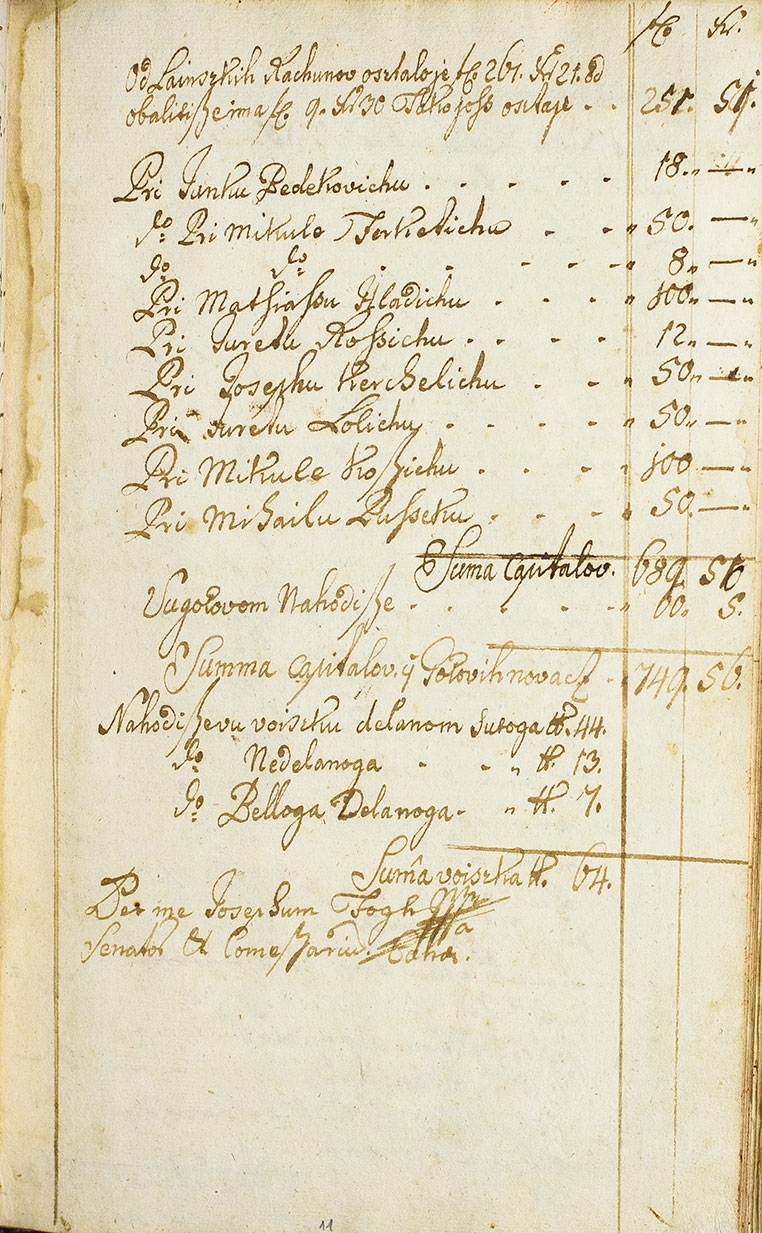 fl. kr.
Od Lainszkih Rachunov osztalo je fl. 261. kr 21. 8d
obalitisse ima fl. 9. kr 30 Tak joss osztaje . . 251. 51.
Pri Janku Bedekovichu . . . . . 18. —
do Pri Mikule . . " 50. —
do do . . . . . " 8 " —
Pri Mathiassu Hladichu . . . . " 100 " —
Pri Juretu Rossichu . . . . 12 " —
Pri Josephu Kerchelichu . . " 50 " —
Pri Juretu Lolichu . . . . " 50 " —
Pri Mikule Kossichu . . . " 100 —
Pri Mihailu Pusseku . . . . " 50. —
Suma capitalov. 689. 51
Vugotovom Nahodisse . . . . . " 60. 5.
Summa capitalov. ÿ Gotovih novacz . " 749. 56.
Nahodisse vu voiszku delanom sutoga tt. 44.
do Nedelanoga . . " tt. 13.
do Belloga Delanoga . " tt. 7.
Suma voiszka tt. 64.
Per me Josephum
Senator et Comessarius.
11